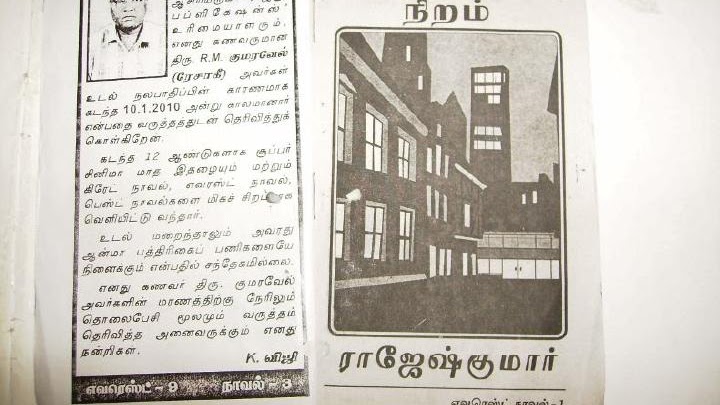 பப்ளிகேஷன்ஸ்'
உரிமையாளரும்,
எனது கணவருமான
திரு. R.M. குமரவேல்
(ரேசாகீ) அவர்கள்
உடல் நலபாதிப்பின் காரணமாக
கடந்த 10.1.2010 அன்று காலமானார்
என்பதை வருத்தத்துடன் தெரிவித்துக்
கொள்கிறேன்.
கடந்த 12 ஆண்டுகளாக சூப்பர்
சினிமா மாத இதழையும் மற்றும்
கிரேட் நாவல், எவரஸ்ட் நாவல்,
பெஸ்ட் நாவல்களை மிகச் சிறப்பாக
வெளியிட்டு வந்தார்.
உடல் மறைந்தாலும் அவரது
ஆன்மா பத்திரிகைப் பணிகளையே
நினைக்கும் என்பதில் சந்தேகமில்லை.
எனது கணவர் திரு. குமரவேல்
அவர்களின் மரணத்திற்கு நேரிலும்
தொலைபேசி மூலமும் வருத்தம்
தெரிவித்த அனைவருக்கும் எனது
நன்றிகள்.
K. விஜி
எவரெஸ்ட் - 9 நாவல் - 3
நிறம்
ராஜேஷ்குமார்
எவரெஸ்ட் நாவல் - 1